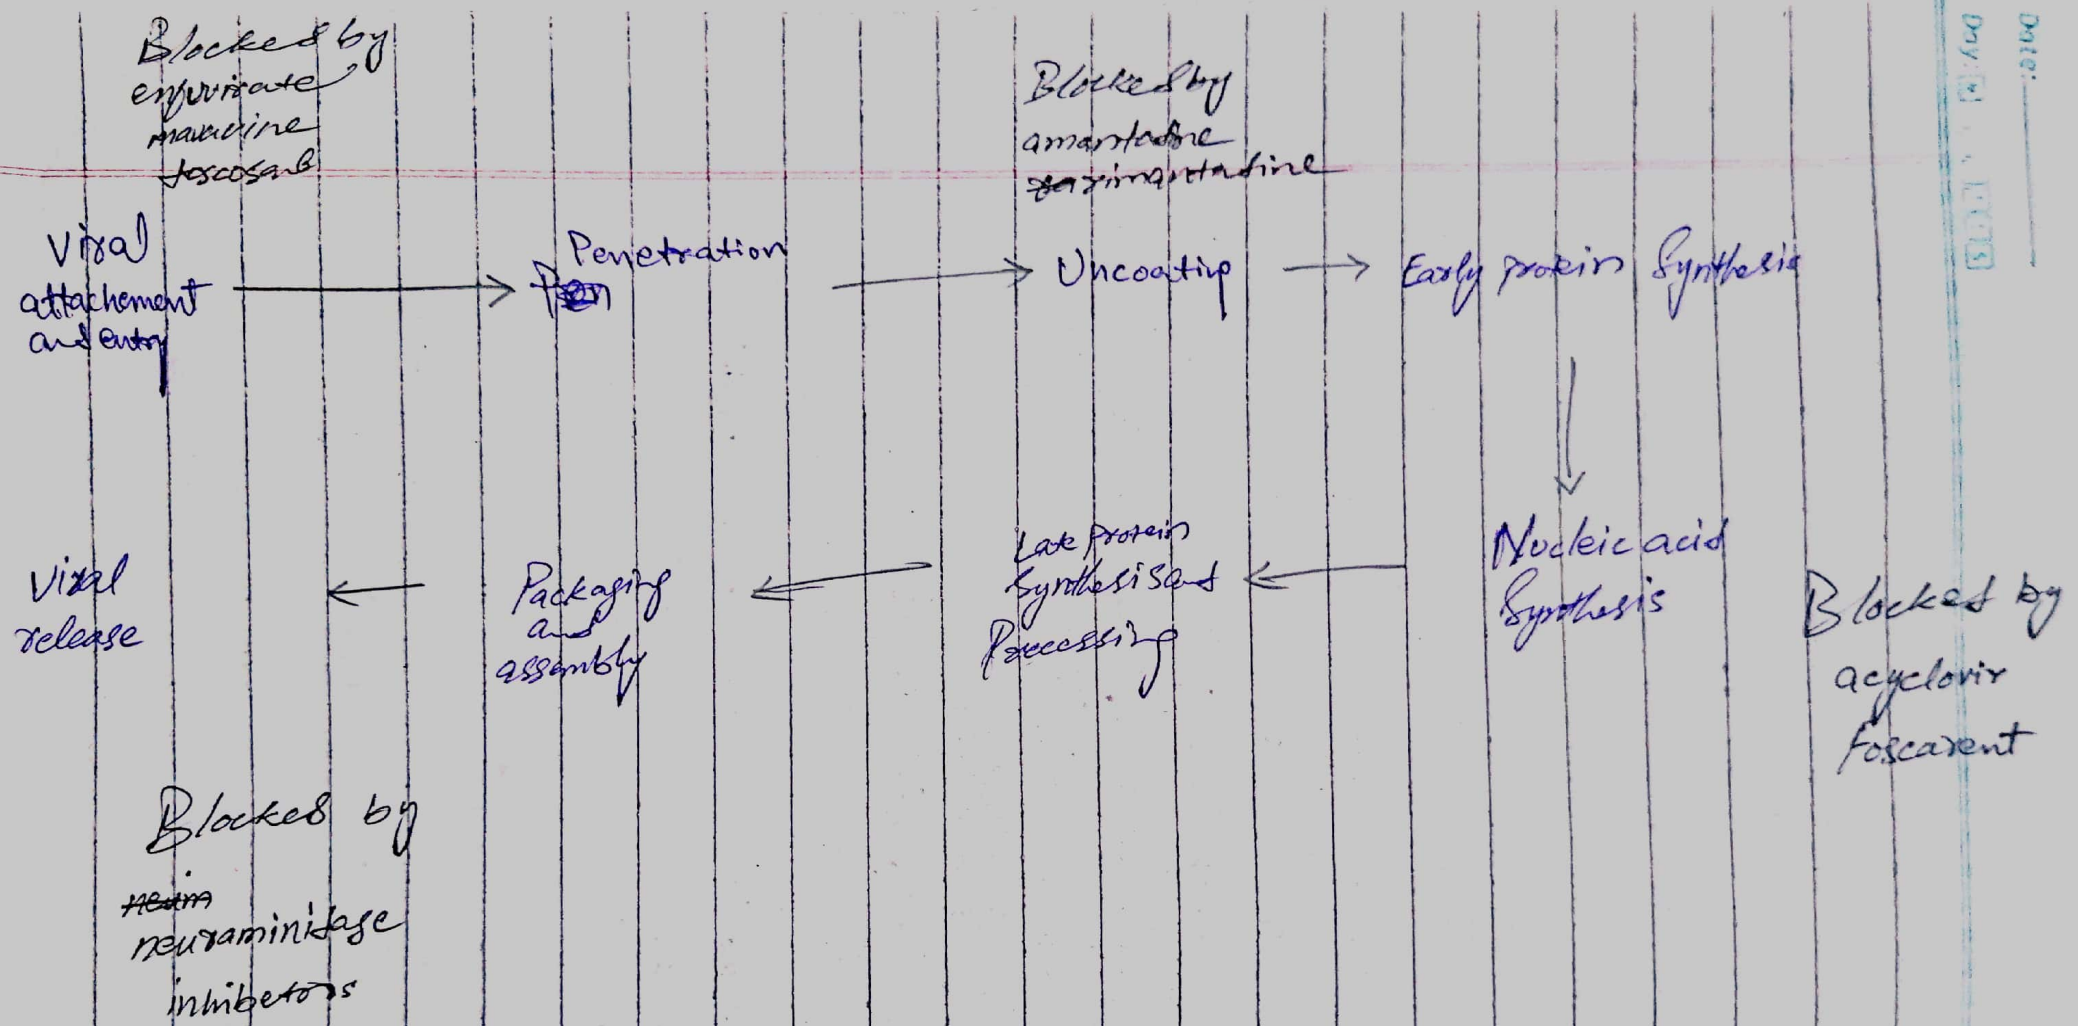 Date:
Day
Blocked by
enfuvirate
maravirine
Blocked by
amantadine
rimantadine
Viral
attachement
and entry
Penetration
Uncoating
Early protein Synthesis
Nucleic acid
Synthesis
Blocked by
acyclovir
Foscarent
Late protein
Synthesis and
Processing
Packaging
and
assembly
Viral
release
Blocked by
neuraminidase
inhibetors